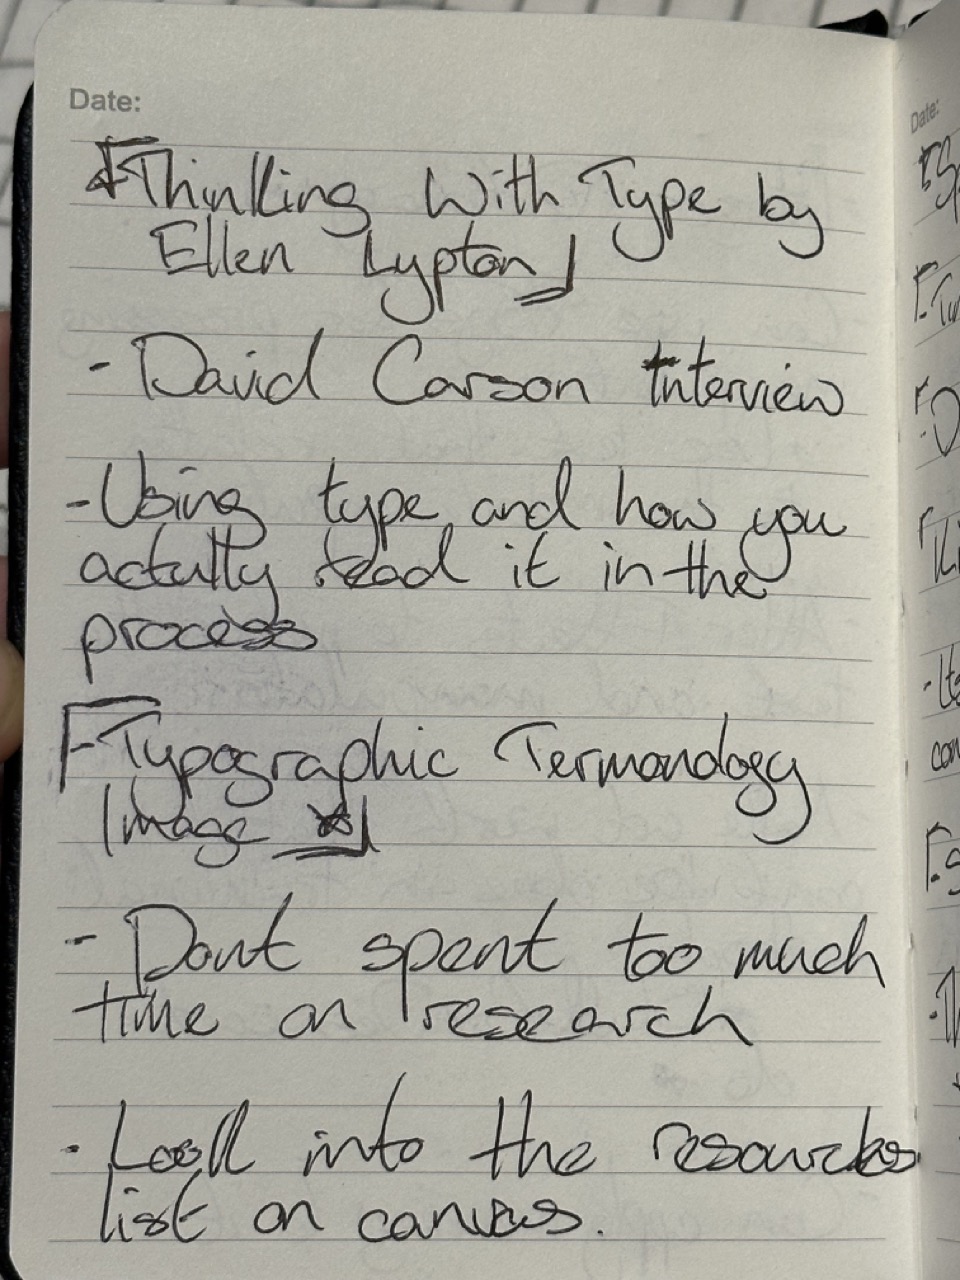 Date:
Thinking With Type by
Ellen Lypton
- David Carson Interview
- Using type and how you
actully read it in the
process
- Typographic Termonology
Image
- Dont spent too much
time on research
- Look into the resources
list on canvas.
Date: